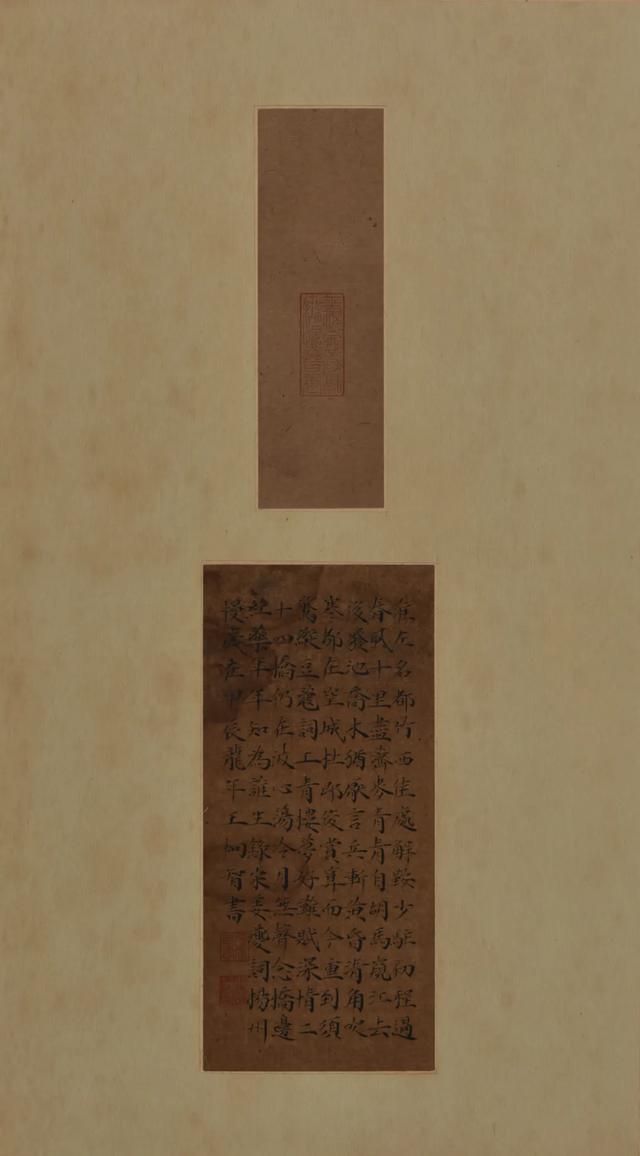 淮左名都竹西佳處解鞍少駐初程過
春風十里盡薺麥青青自胡馬窺江去
後廢池喬木猶厭言兵漸黃昏清角吹
寒都在空城杜郎俊賞算而今重到須
驚縱豆蔻詞工青樓夢好難賦深情二
十四橋仍在波心蕩冷月無聲念橋邊
紅藥年年知為誰生錄宋姜夔詞揚州
慢歲在甲辰龍年王炯智書